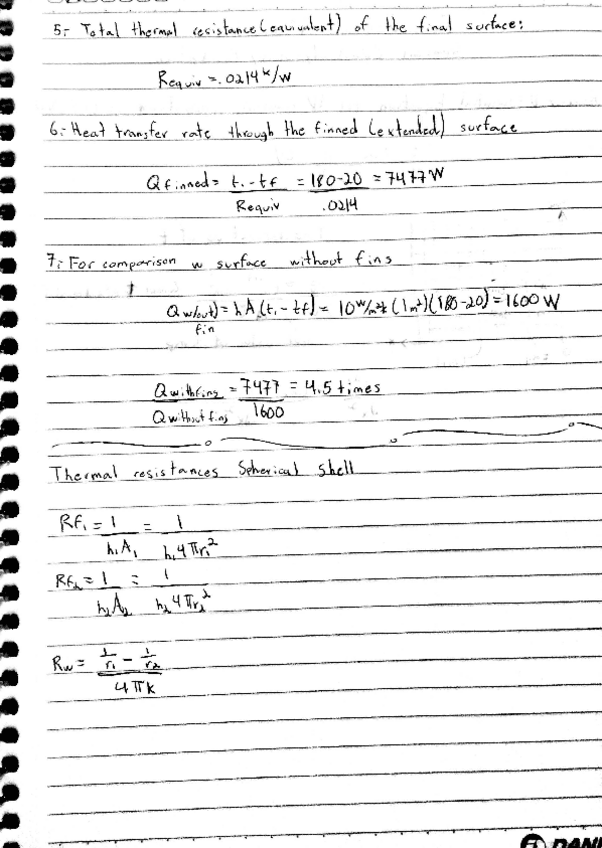 5:- Total thermal resistance (equivalent) of the final surface:
Requiv = .0214 K/W
6:- Heat transfer rate through the finned (extended) surface
Qfinned = t₁ - tf / Requiv = 180-20 / .0214 = 7477 W
7:- For comparison w surface without fins
Q w/out) fin = h A₁(t₁ - tf) = 10 W/m²k (1m²)(180-20) = 1600 W
Qwithfins / Qwithout fins = 7477 / 1600 = 4.5 times
Thermal resistances Spherical shell
RF₁ = 1 / h₁A₁ = 1 / h₁4πr₁²
RF₂ = 1 / h₂A₂ = 1 / h₂4πr₂²
Rw = 1/r₁ - 1/r₂ / 4πk